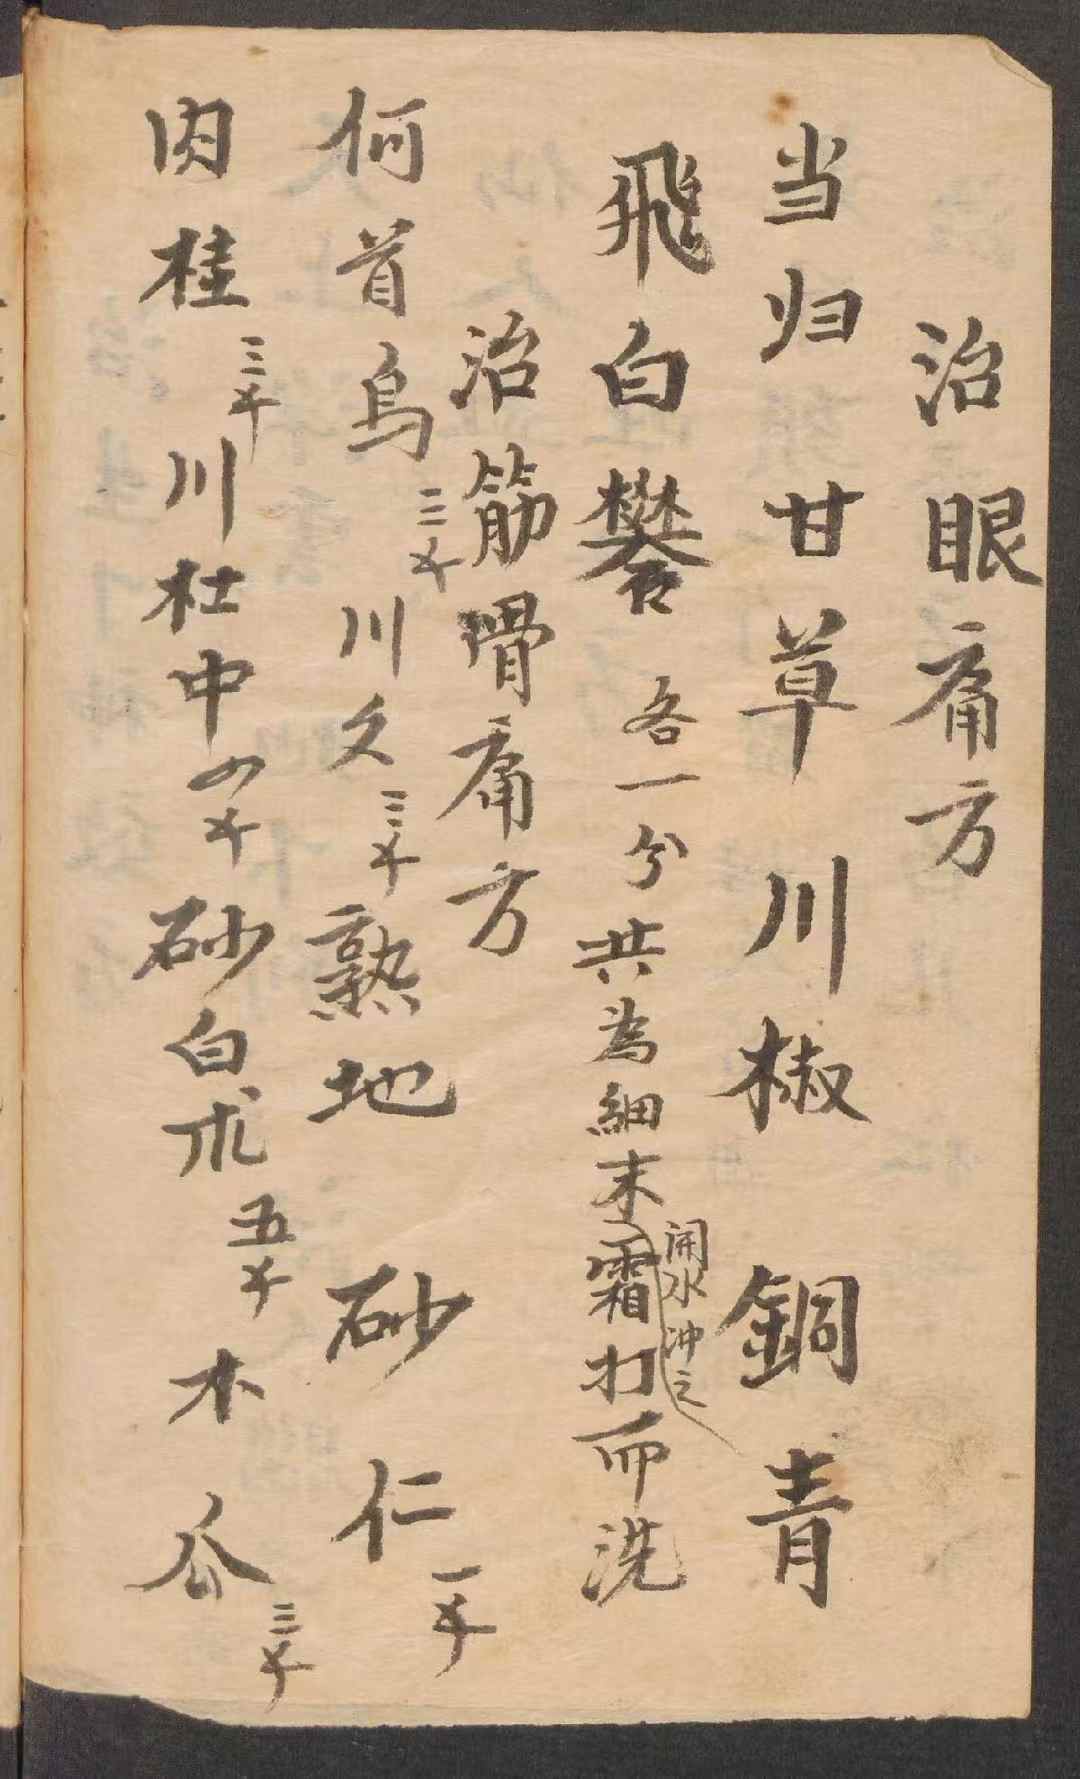 治眼痛方
当归甘草川椒 銅青
飛白礬各一分共為細末霜打而洗
開水冲之
治筋骨痛方
何首烏三㐅川文三㐅熟地砂仁一㐅
肉桂三㐅川杜中四㐅砂白朮五㐅木瓜三㐅